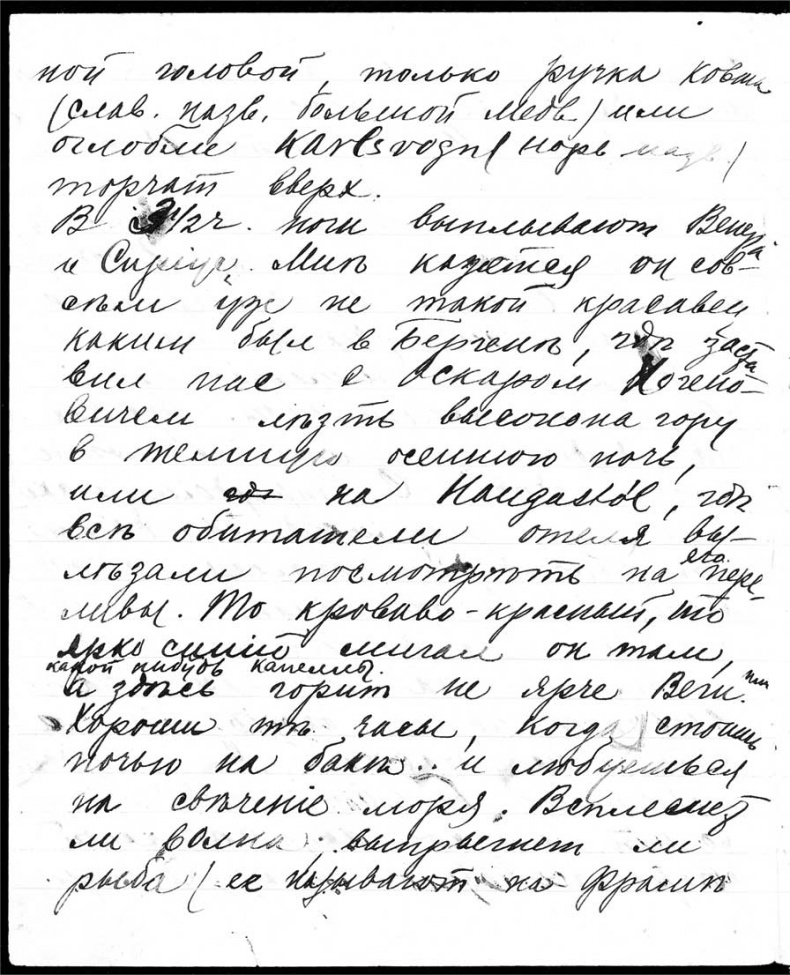 ной головой, только ручка ковша
(слав. назв. большой медв) или
оглобле Karlsvogn (норв назв)
торчат вверх.
В 1/2 ч. ночи выплывают Венера
и Сиріус. Мнѣ кажется он сов-
сѣм уж не такой красавец
каким был в Бергенѣ, гдѣ заста
вил нас с Оскаром
вичем лѣзть высоко на гору
в темную осеннюю ночь,
или на Haugastöl, гдѣ
всѣ обитатели отеля вы-
лѣзали посмотрѣть на его пере-
ливы. То кроваво-красный, то
ярко синій мигал он там,
а здѣсь горит не ярче Веги или
какой нибудь капеллы.
Хороши тѣ часы, когда стоишь
ночью на бакѣ.. и любуешься
на свѣченіе моря. Всплеснет
ли волна, выпрыгнет ли
рыба (ее называют на Фрамѣ